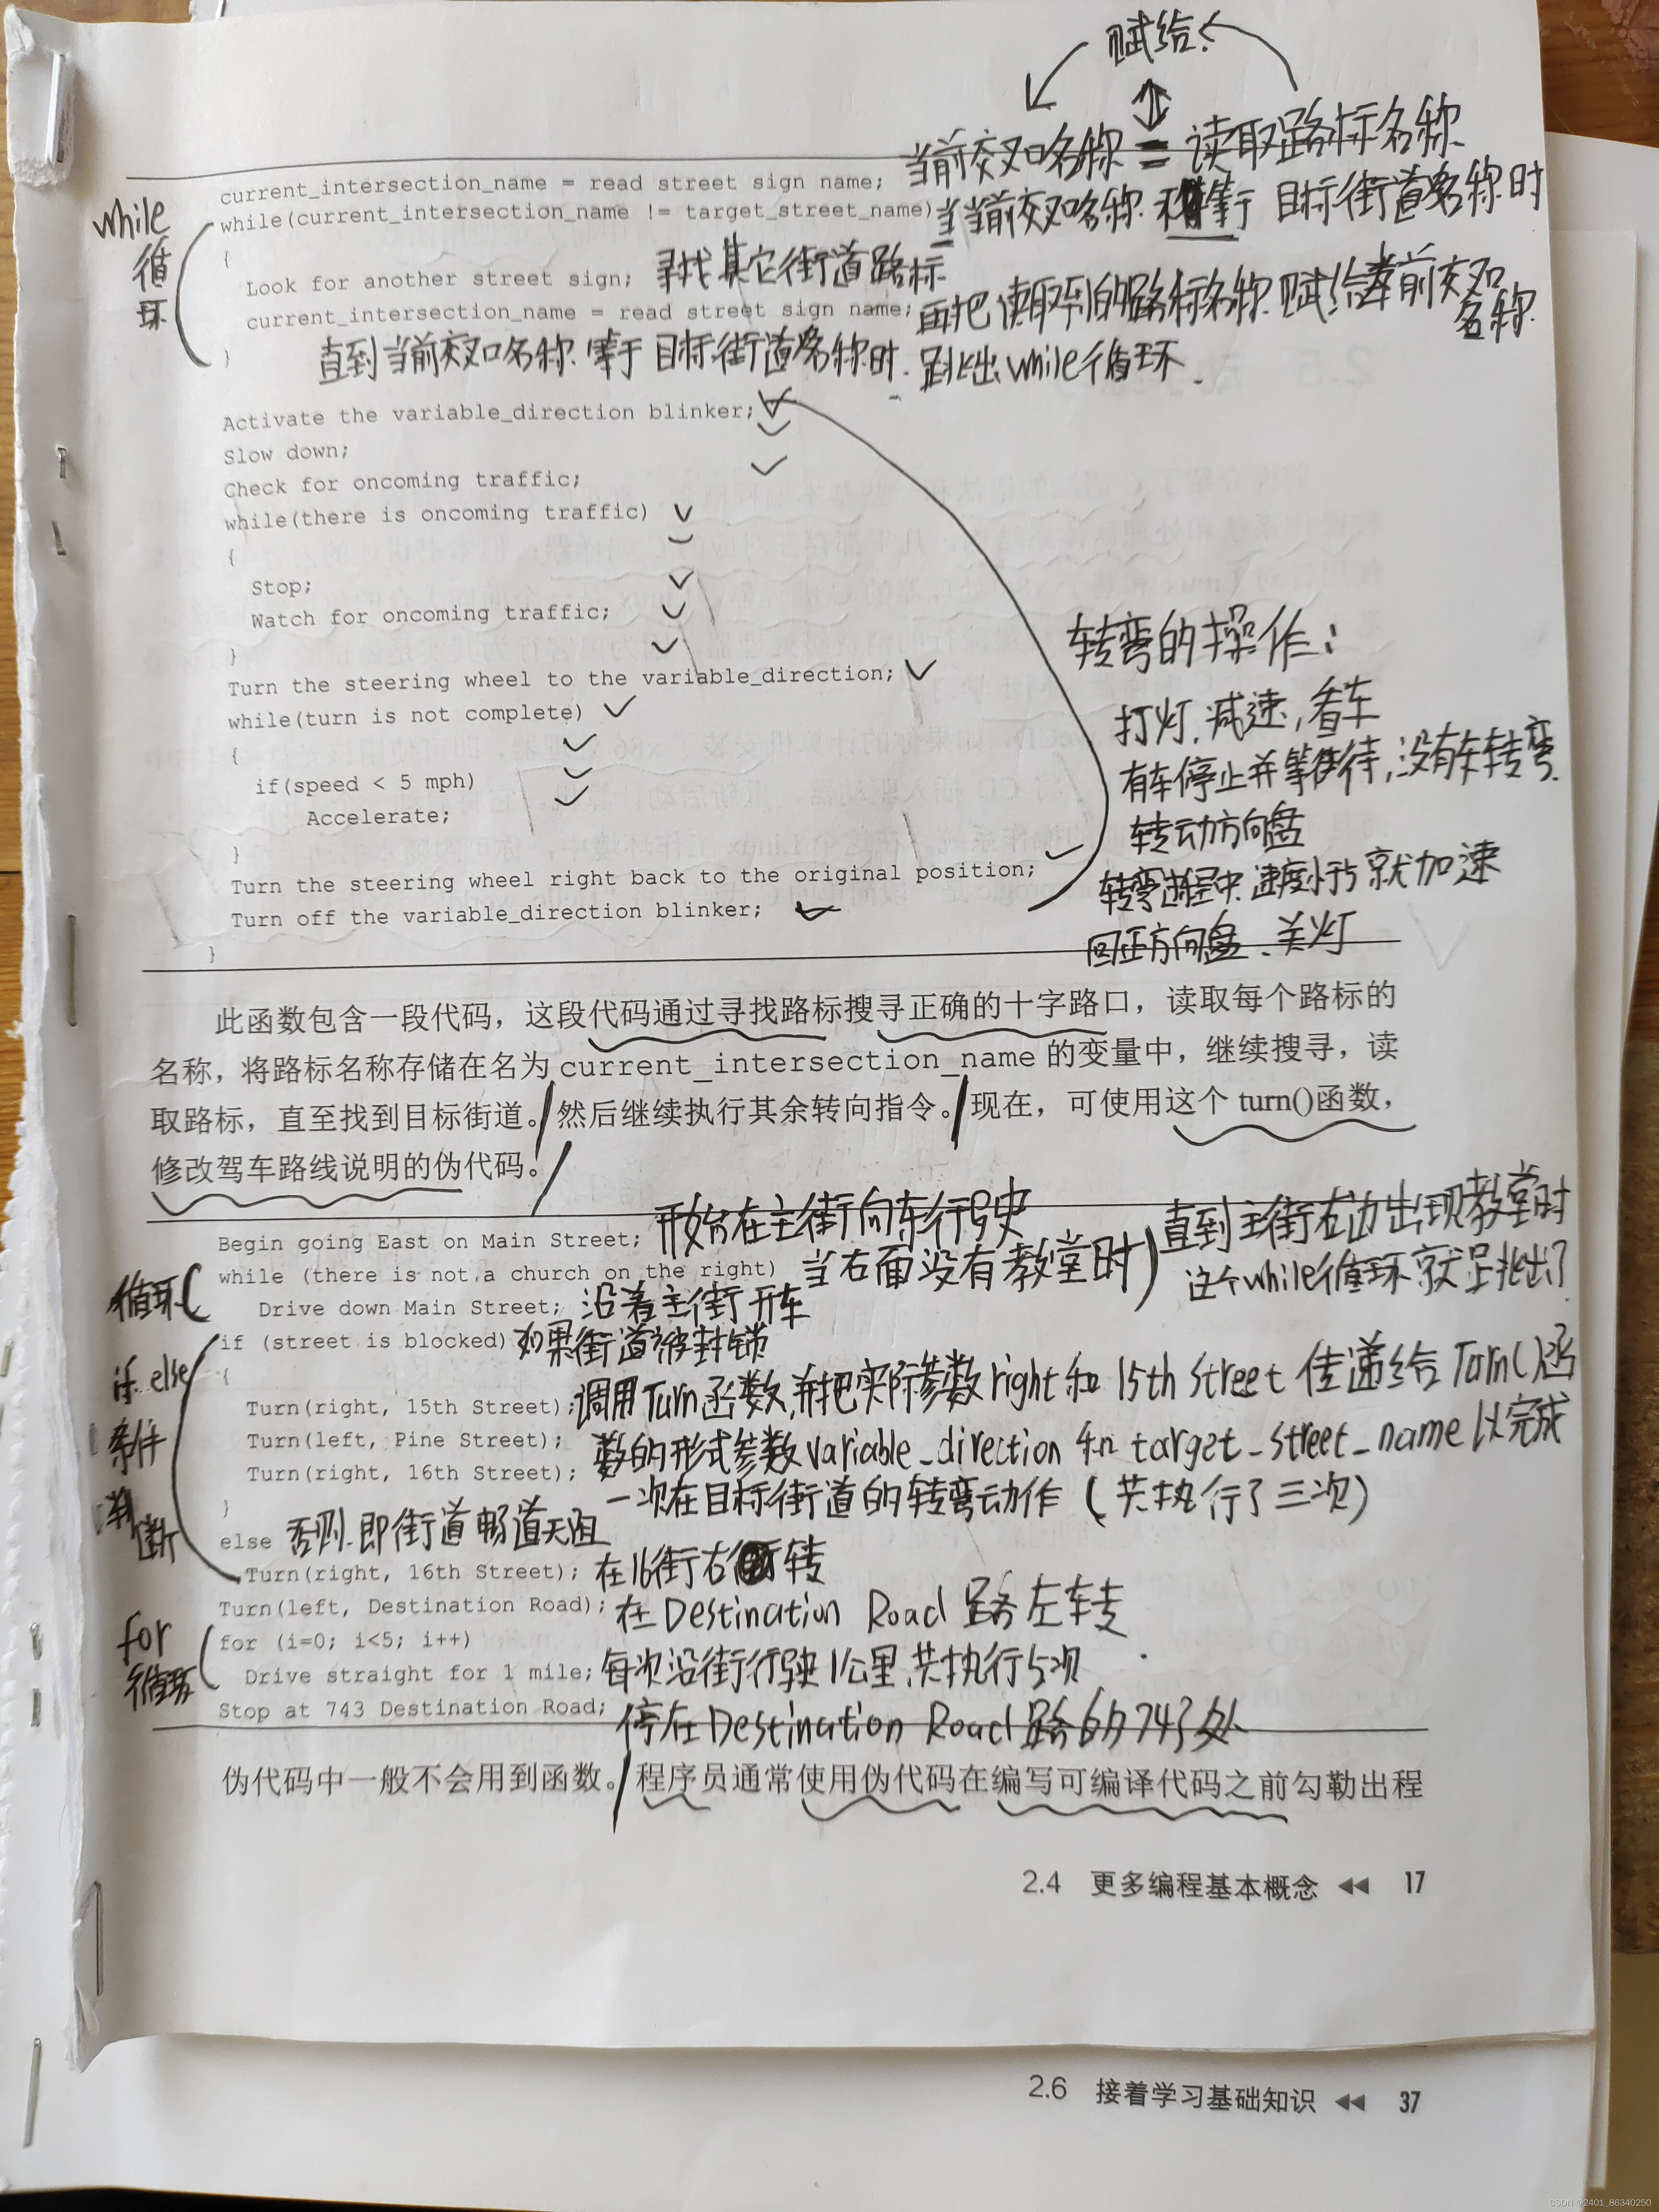 赋给
当前交叉口名称 = 读取路标名称
current_intersection_name = read street sign name;
while
循
环
while(current_intersection_name != target_street_name) 当当前交叉口名称 不等于 目标街道名称时
{
Look for another street sign; 寻找其它街道路标
current_intersection_name = read street sign name; 再把读取到的路标名称赋给当前交叉口
名称
} 直到当前交叉口名称等于目标街道名称时. 跳出while循环.
Activate the variable_direction blinker;
Slow down;
Check for oncoming traffic;
while(there is oncoming traffic)
{
Stop;
Watch for oncoming traffic;
}
Turn the steering wheel to the variable_direction;
while(turn is not complete)
{
if(speed < 5 mph)
Accelerate;
}
Turn the steering wheel right back to the original position;
Turn off the variable_direction blinker;
}
转弯的操作:
打灯, 减速, 看车
有车停止并等待, 没有车转弯.
转动方向盘
转弯过程中, 速度小于5就加速
回正方向盘、关灯
此函数包含一段代码，这段代码通过寻找路标搜寻正确的十字路口，读取每个路标的
名称，将路标名称存储在名为 current_intersection_name 的变量中，继续搜寻，读
取路标，直至找到目标街道。然后继续执行其余转向指令。现在，可使用这个 turn()函数，
修改驾车路线说明的伪代码。
Begin going East on Main Street; 开始在主街向东行驶
循环
while (there is not a church on the right) 当右面没有教堂时
直到主街右边出现教堂时
这个while循环就跳出了
Drive down Main Street; 沿着主街开车
if (street is blocked) 如果街道被封锁
if else
条件
判
断
{
Turn(right, 15th Street); 调用Turn函数,并把实际参数right和15th Street 传递给 Turn()函
Turn(left, Pine Street); 数的形式参数variable_direction 和 target_street_name以完成
Turn(right, 16th Street); 一次在目标街道的转弯动作 (共执行了三次)
}
else 否则.即街道畅道无阻
Turn(right, 16th Street); 在16街右转
Turn(left, Destination Road); 在Destination Road 路左转
for
循环
for (i=0; i<5; i++)
Drive straight for 1 mile; 每次沿街行驶1公里,共执行5次
Stop at 743 Destination Road; 停在Destination Road路的743处
伪代码中一般不会用到函数。程序员通常使用伪代码在编写可编译代码之前勾勒出程
2.4 更多编程基本概念 ◀◀ 17
2.6 接着学习基础知识 ◀◀ 37
CSDN @2401_86340250